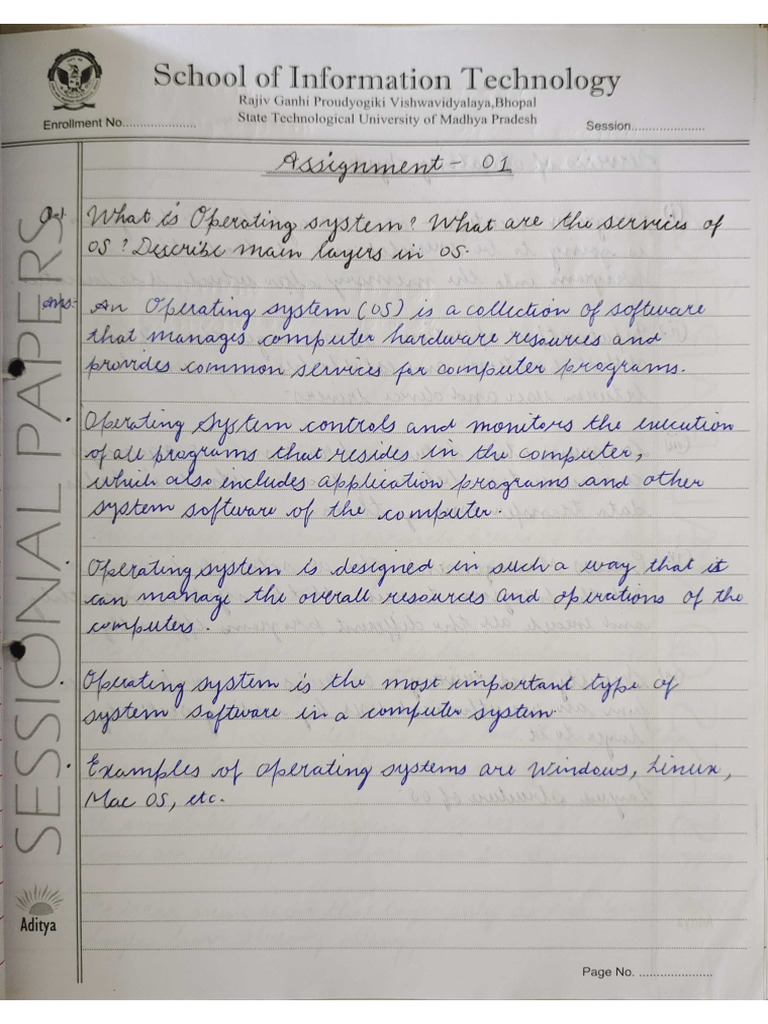 School of Information Technology
Rajiv Ganhi Proudyogiki Vishwavidyalaya,Bhopal
Enrollment No.................... State Technological University of Madhya Pradesh Session......................
Assignment - 01
Q.1. What is Operating system? What are the services of
OS? Describe main layers in OS.
Ans:- An Operating system (OS) is a collection of software
that manages computer hardware resources and
provides common services for computer programs.
• Operating System controls and monitors the execution
of all programs that resides in the computer,
which also includes application programs and other
system software of the computer.
• Operating system is designed in such a way that it
can manage the overall resources and operations of the
computers.
• Operating system is the most important type of
system software in a computer system.
• Examples of operating systems are Windows, Linux,
Mac OS, etc.
SESSIONAL PAPERS
Aditya
Page No. ......................